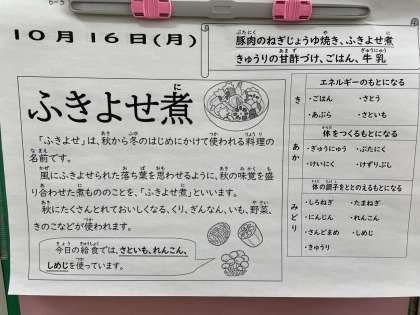 10月16日(月)
豚肉のねぎじょうゆ焼き、ふきよせ煮
きゅうりの甘酢づけ、ごはん、牛乳
ふきよせ煮
「ふきよせ」は、秋から冬のはじめにかけて使われる料理の
名前です。
風にふきよせられた落ち葉を思わせるように、秋の味覚を盛
り合わせた煮もののことを、「ふきよせ煮」といいます。
秋にたくさんとれておいしくなる、くり、ぎんなん、いも、野菜、
きのこなどが使われます。
今日の給食では、さといも、れんこん、
しめじを使っています。
エネルギーのもとになる
き
・ごはん ・さとう
・あぶら ・さといも
体をつくるもとになる
あか
・ぎゅうにゅう ・ぶたにく
・けいにく ・けずりぶし
体の調子をととのえるもとになる
みどり
・しろねぎ ・たまねぎ
・にんじん ・れんこん
・さんどまめ ・しめじ
・きゅうり